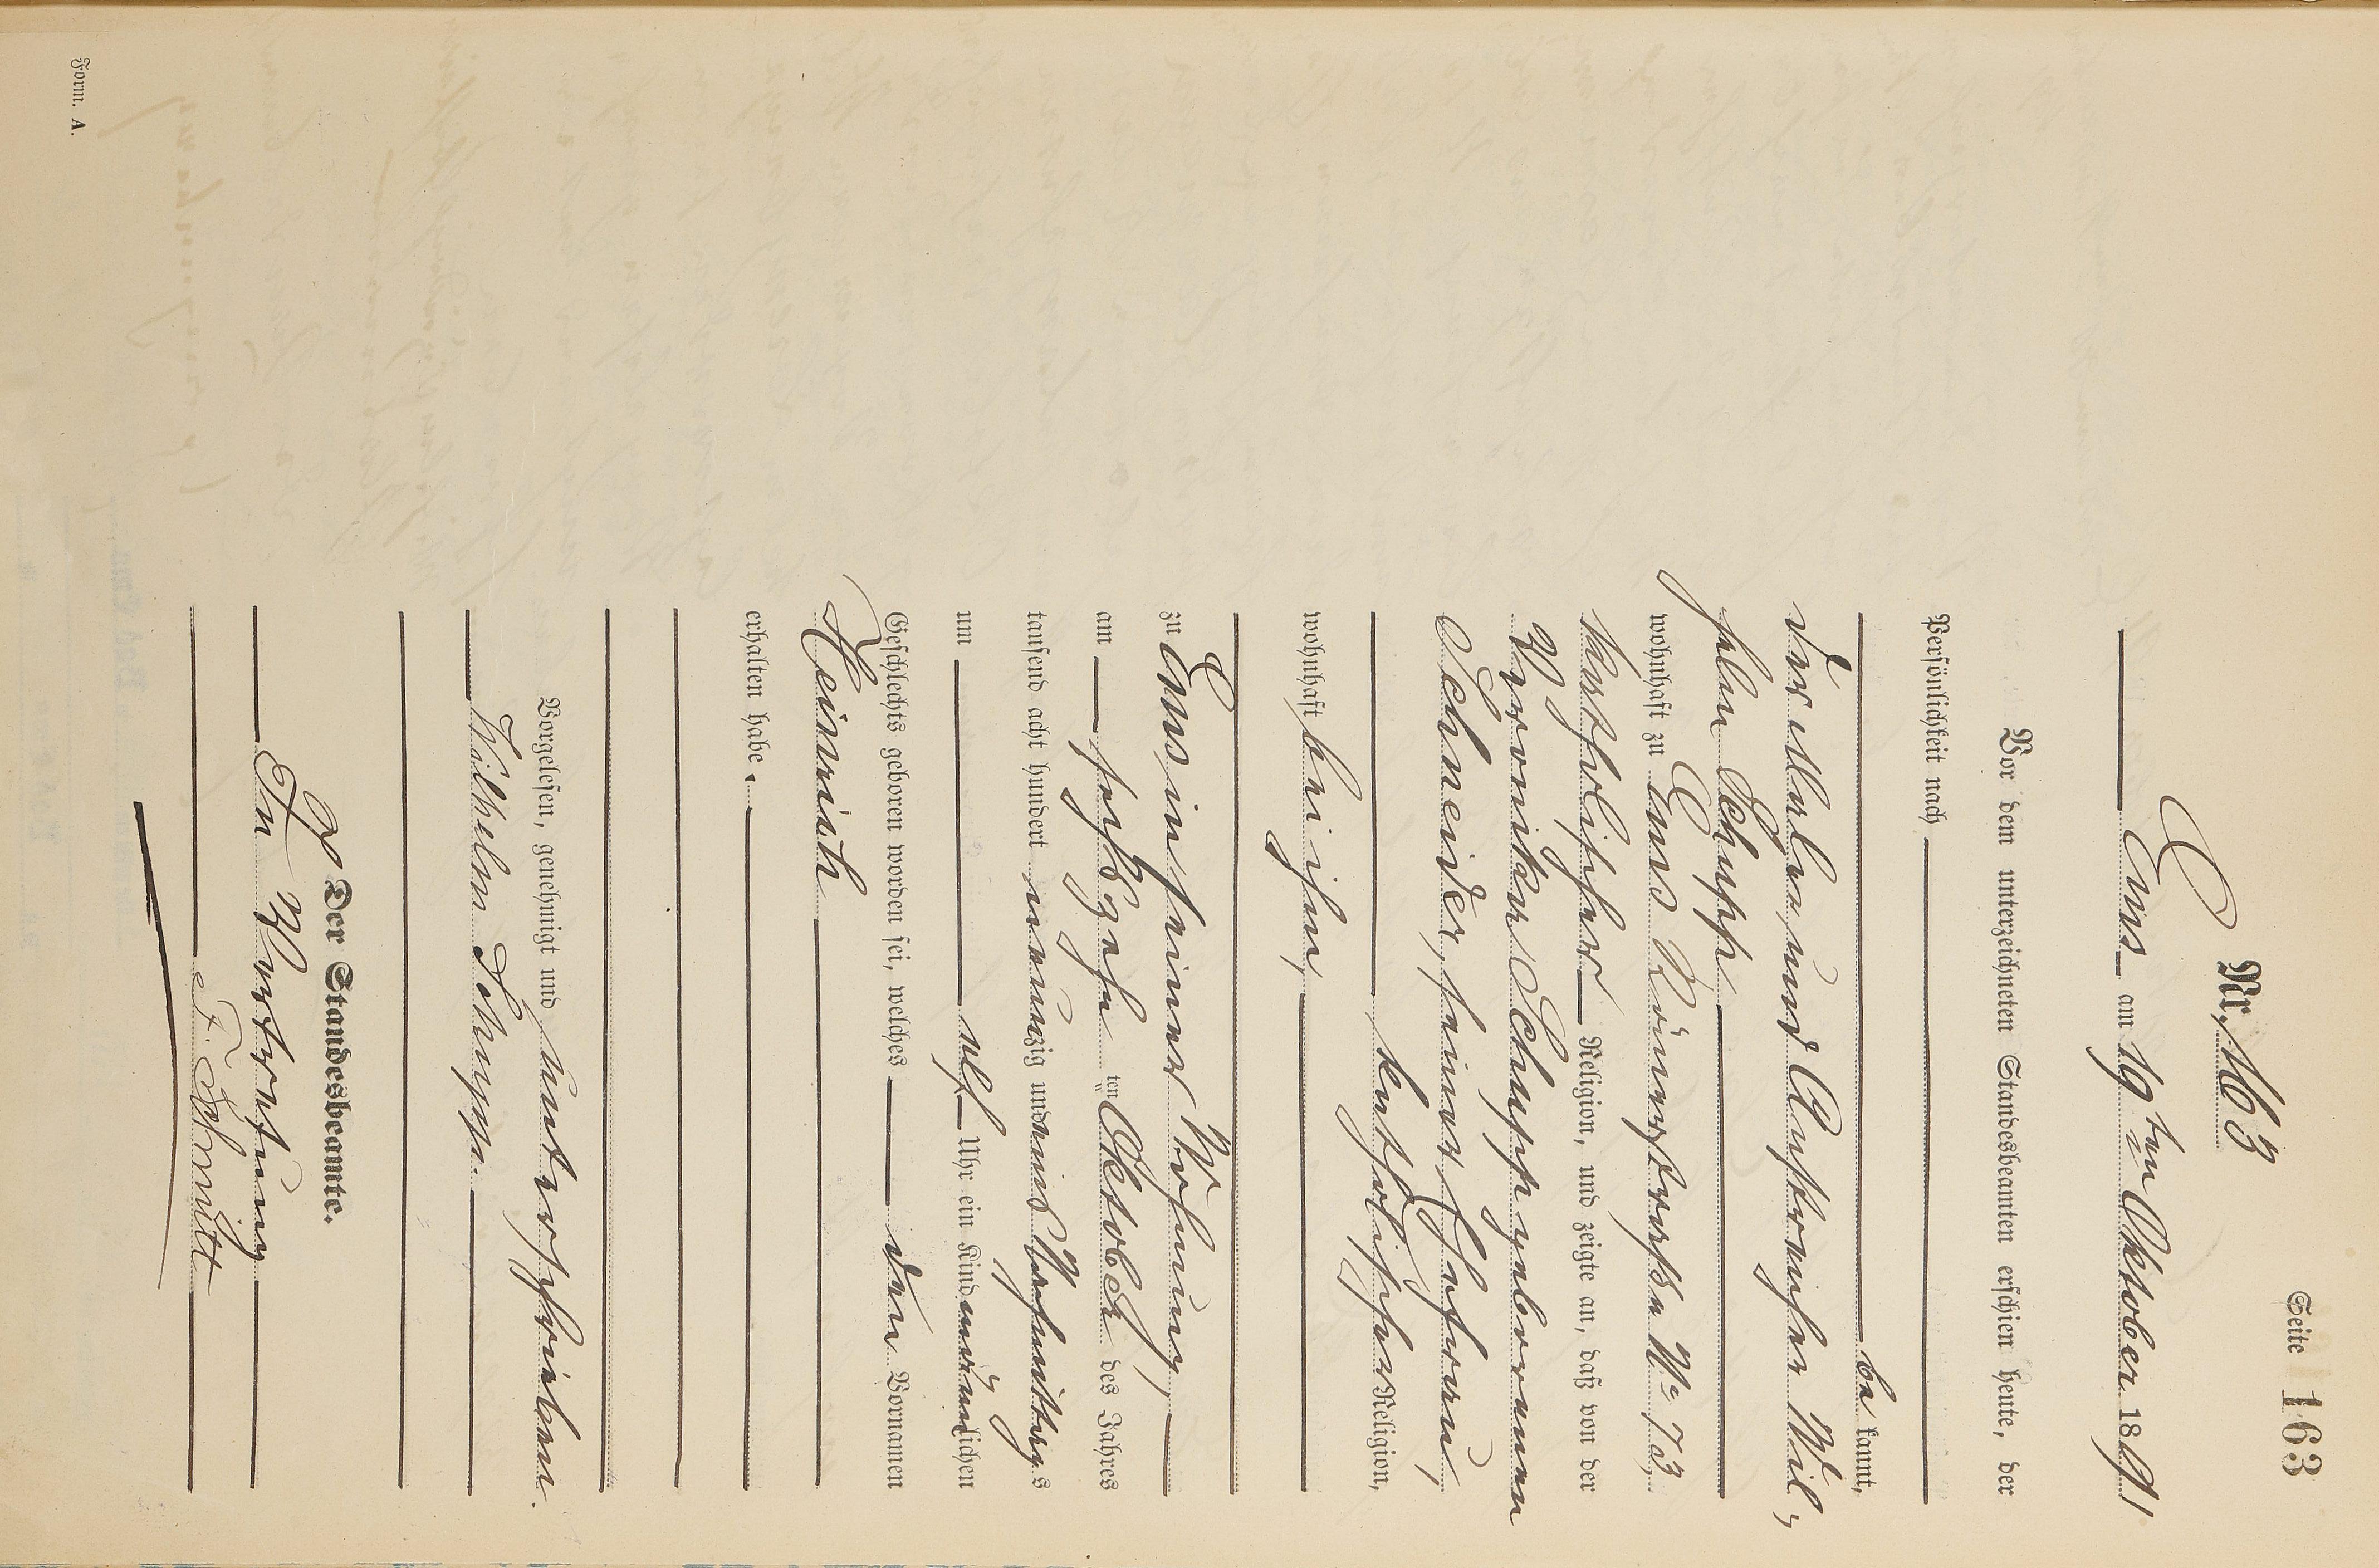 Seite 163
Nr. 163
Ems am 19ten Oktober 1891
Vor dem unterzeichneten Standesbeamten erschien heute, der
Persönlichkeit nach
be kannt,
der Maler und Anstreicher Wil¬
helm Schupp
wohnhaft zu Ems Römerstraße No 73
katholischer Religion, und zeigte an, daß von der
Veronika Schupp geborenen
Schneider, seiner Ehefrau,
katholischer Religion,
wohnhaft bei ihm,
zu Ems in seiner Wohnung,
am sechszehnten Oktober des Jahres
tausend acht hundert neunzig und eins Vormittags
um elf Uhr ein Kind männlichen
Geschlechts geboren worden sei, welches den Vornamen
Heinrich
erhalten habe.
Vorgelesen, genehmigt und unterschrieben.
Wilhelm Schupp.
Der Standesbeamte.
In Vertretung
F. Schmitt
Form. A.